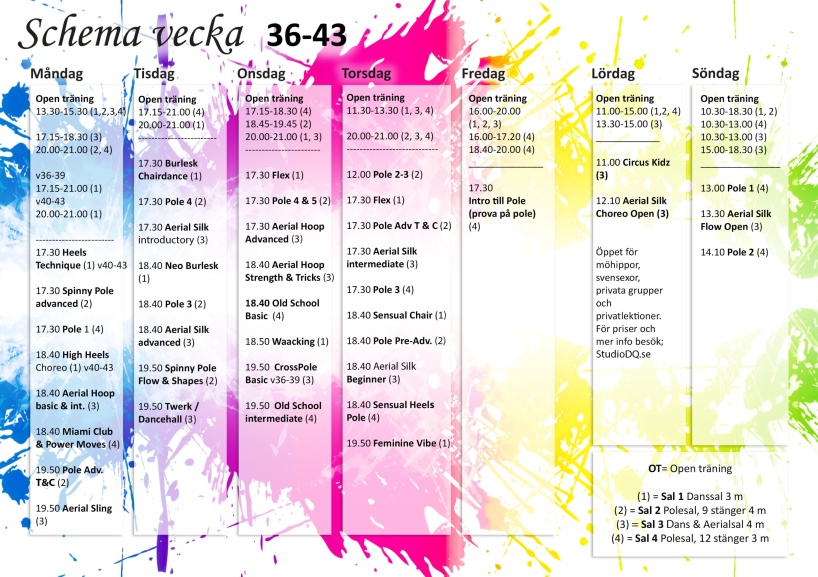 Schema vecka 36-43
Måndag
Open träning
13.30-15.30 (1,2,3,4)
17.15-18.30 (3)
20.00-21.00 (2, 4)
v36-39
17.15-21.00 (1)
v40-43
20.00-21.00 (1)
------------------------
17.30 Heels
Technique (1) v40-43
17.30 Spinny Pole
advanced (2)
17.30 Pole 1 (4)
18.40 High Heels
Choreo (1) v40-43
18.40 Aerial Hoop
basic & int. (3)
18.40 Miami Club
& Power Moves (4)
19.50 Pole Adv.
T&C (2)
19.50 Aerial Sling
(3)
Tisdag
Open träning
17.15-21.00 (4)
20.00-21.00 (1)
------------------------
17.30 Burlesk
Chairdance (1)
17.30 Pole 4 (2)
17.30 Aerial Silk
introductory (3)
18.40 Neo Burlesk
(1)
18.40 Pole 3 (2)
18.40 Aerial Silk
advanced (3)
19.50 Spinny Pole
Flow & Shapes (2)
19.50 Twerk /
Dancehall (3)
Onsdag
Open träning
17.15-18.30 (4)
18.45-19.45 (2)
20.00-21.00 (1, 3)
-----------------------
17.30 Flex (1)
17.30 Pole 4 & 5 (2)
17.30 Aerial Hoop
Advanced (3)
18.40 Aerial Hoop
Strength & Tricks (3)
18.40 Old School
Basic (4)
18.50 Waacking (1)
19.50 CrossPole
Basic v36-39 (3)
19.50 Old School
intermediate (4)
Torsdag
Open träning
11.30-13.30 (1, 3, 4)
20.00-21.00 (2, 3, 4)
----------------------------
12.00 Pole 2-3 (2)
17.30 Flex (1)
17.30 Pole Adv T & C (2)
17.30 Aerial Silk
intermediate (3)
17.30 Pole 3 (4)
18.40 Sensual Chair (1)
18.40 Pole Pre-Adv. (2)
18.40 Aerial Silk
Beginner (3)
18.40 Sensual Heels
Pole (4)
19.50 Feminine Vibe (1)
Fredag
Open träning
16.00-20.00
(1, 2, 3)
16.00-17.20 (4)
18.40-20.00 (4)
_______________
17.30
Intro till Pole
(prova på pole)
(4)
Lördag
Open träning
11.00-15.00 (1,2, 4)
13.30-15.00 (3)
_____________
11.00 Circus Kidz
(3)
12.10 Aerial Silk
Choreo Open (3)
Öppet för
möhippor,
svensexor,
privata grupper
och
privatlektioner.
För priser och
mer info besök;
StudioDQ.se
Söndag
Open träning
10.30-18.30 (1, 2)
10.30-13.00 (4)
10.30-13.00 (3)
15.00-18.30 (3)
________________
13.00 Pole 1 (4)
13.30 Aerial Silk
Flow Open (3)
14.10 Pole 2 (4)
OT= Open träning
(1) = Sal 1 Danssal 3 m
(2) = Sal 2 Polesal, 9 stänger 4 m
(3) = Sal 3 Dans & Aerialsal 4 m
(4) = Sal 4 Polesal, 12 stänger 3 m